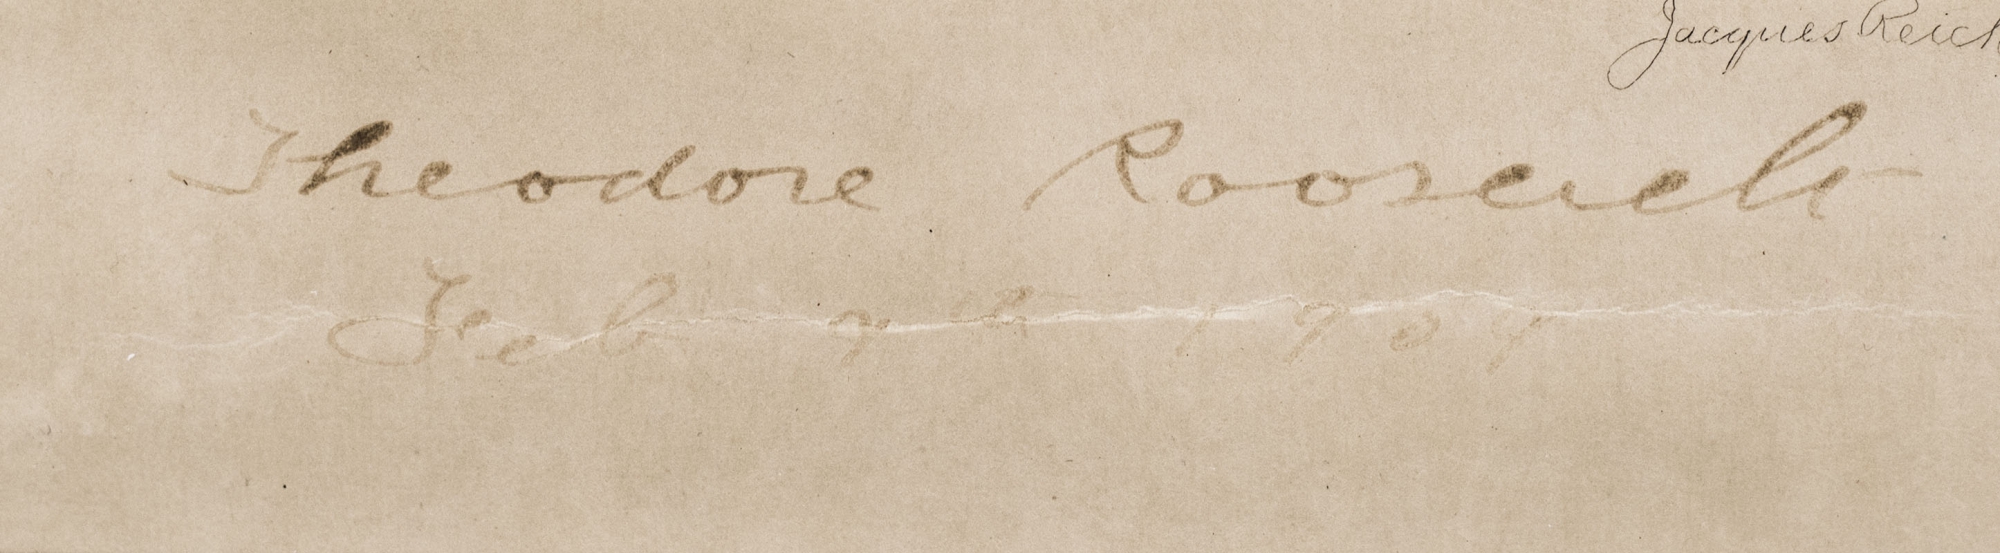 Jacques Reich
Theodore Roosevelt
Feb